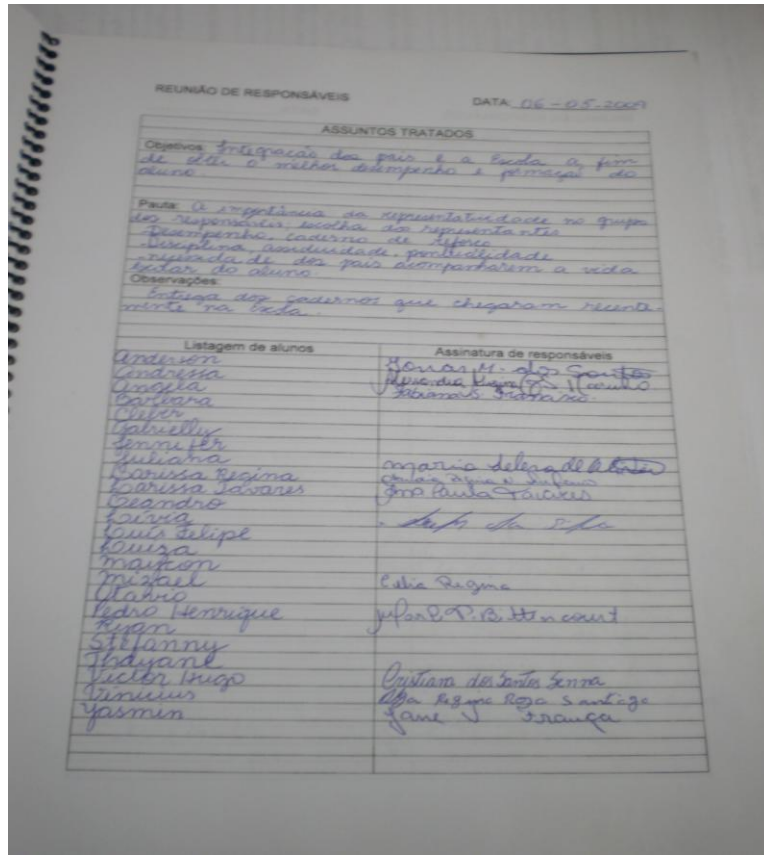 REUNIÃO DE RESPONSÁVEIS DATA: 06-05-2009
ASSUNTOS TRATADOS
Objetivos: Integração dos pais e a Escola a fim
de obter o melhor desempenho e formação do
aluno.
Pauta: A importância da representatividade no grupo
dos responsáveis, escolha dos representantes
Desempenho, caderno de reforço
-Disciplina, assiduidade, pontualidade
de dos pais acompanharem a vida
do aluno
Observações:
Entrega dos cadernos que chegaram recente-
mente na
Listagem de alunos Assinatura de responsáveis
Anderson
Andressa dos Santos
Angela
Barbara
Cleber
Gabrielly
Jennifer
Juliana
Larissa Regina maria
Larissa Tavares Ana Paula Tavares
Leandro
Livia
Luís Felipe
Louiza
Maykon
Mizael Celia Regina
Otavio
Pedro Henrique
Ryan
Stefanny
Thayane
Victor Hugo Cristiana dos Santos Senna
Vinicius Regina Rosa Santiago
Yasmin Jane França